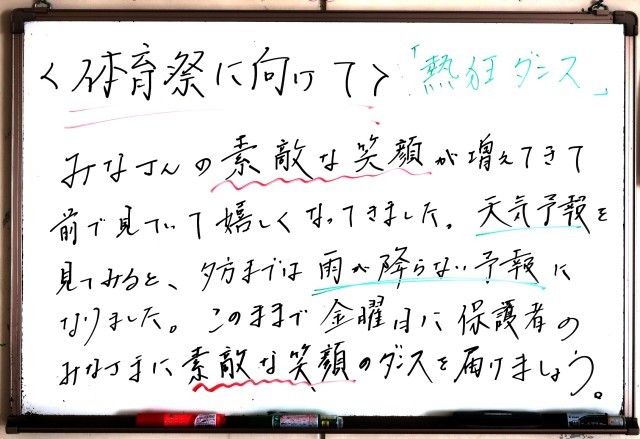 ＜体育祭に向けて＞「熱狂ダンス」
みなさんの素敵な笑顔が増えてきて
前で見ていて嬉しくなってきました。天気予報を
見てみると、夕方までは雨が降らない予報に
なりました。このままで金曜日に保護者の
みなさまに素敵な笑顔のダンスを届けましょう。